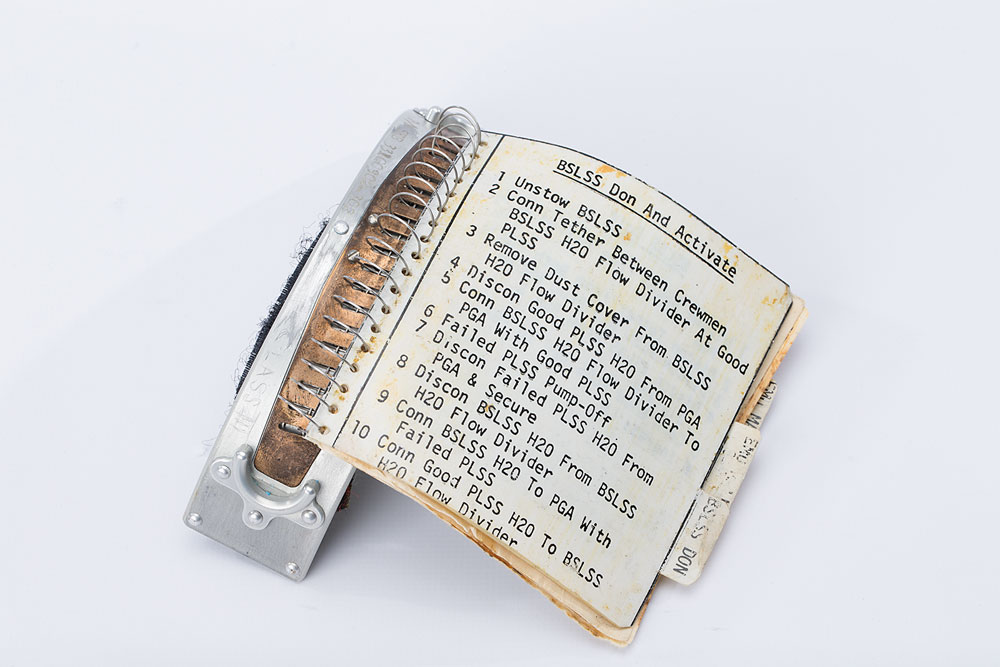 BSLSS Don And Activate
1 Unstow BSLSS
2 Conn Tether Between Crewmen
BSLSS H2O Flow Divider At Good
PLSS
3 Remove Dust Cover From BSLSS
H2O Flow Divider
4 Discon Good PLSS H2O From PGA
5 Conn BSLSS H2O Flow Divider To
PGA With Good PLSS
6 Failed PLSS Pump-Off
7 Discon Failed PLSS H2O From
PGA & Secure
8 Discon BSLSS H2O From BSLSS
H2O Flow Divider
9 Conn BSLSS H2O To PGA With
Failed PLSS
10 Conn Good PLSS H2O To BSLSS
H2O Flow Divider
EMU
BSLSS DON